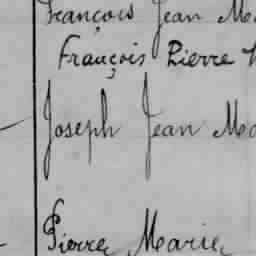 François Jean Ma
François Pierre
Joseph Jean Ma
Pierre Marie